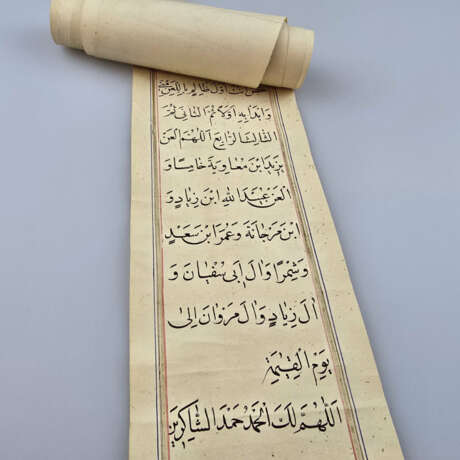 خص انت اول ظالم باللعن
وابدا به اولا ثم الثاني ثم
الثالث الرابع اللهم العن
يزيد ابن معاوية خامسا و
العن عبد الله ابن زياد و
ابن مرجانة وعمر ابن سعد
وشمرا وال ابى سفيان و
ال زياد وال مروان الى
يوم القيمة
اللهم لك الحمد حمد الشاكرين